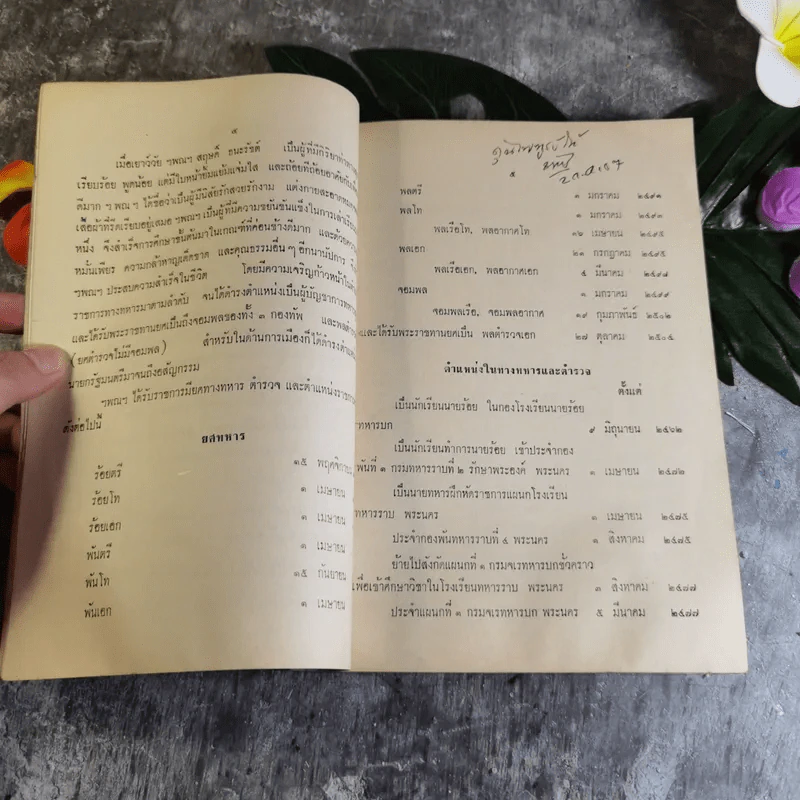 ๙
เมื่อเยาว์วัย ฯพณฯ สฤษดิ์ ธนะรัชต์ เป็นผู้ที่มีกิริยาท่าทาง
เรียบร้อย พูดน้อย แต่มีใบหน้ายิ้มแย้มแจ่มใส และถ้อยทีถ้อยอาศัยกับเพื่อน
ดีมาก ฯพณฯ ได้ชื่อว่าเป็นผู้มีนิสัยรักสวยรักงาม แต่งกายสะอาด
เสื้อผ้าที่รีดเรียบอยู่เสมอ ฯพณฯ เป็นผู้ที่มีความขยันขันแข็งในการเล่าเรียน
หนึ่ง จึงสำเร็จการศึกษาชั้นต้นมาในเกณฑ์ที่ค่อนข้างดีมาก และด้วยความ
หมั่นเพียร ความกล้าหาญเด็ดขาด และคุณธรรมอื่น ๆ อีกนานัปการ
ฯพณฯ ประสบความสำเร็จในชีวิต โดยมีความเจริญก้าวหน้าใน
ราชการทางทหารมาตามลำดับ จนได้ดำรงตำแหน่งเป็นผู้บัญชาการทหาร
และได้รับพระราชทานยศเป็นถึงจอมพลของทั้ง ๓ กองทัพ และพลตำรวจ
(ยศตำรวจไม่มีจอมพล) สำหรับในด้านการเมืองก็ได้ดำรงตำแหน่ง
นายกรัฐมนตรีมาจนถึงอสัญกรรม
ฯพณฯ ได้รับราชการมียศทางทหาร ตำรวจ และตำแหน่งราชการ
ดังต่อไปนี้
ยศทหาร
ร้อยตรี ๑๕ พฤศจิกายน
ร้อยโท ๑ เมษายน
ร้อยเอก ๑ เมษายน
พันตรี ๑ เมษายน
พันโท ๑๕ กันยายน
พันเอก ๑ เมษายน
๕
พลตรี ๑ มกราคม ๒๔๙๑
พลโท ๑ มกราคม ๒๔๙๓
พลเรือโท, พลอากาศโท ๑๖ เมษายน ๒๔๙๕
พลเอก ๒๑ กรกฎาคม ๒๔๙๕
พลเรือเอก, พลอากาศเอก ๕ มีนาคม ๒๔๙๗
จอมพล ๑ มกราคม ๒๔๙๙
จอมพลเรือ, จอมพลอากาศ ๑๙ กุมภาพันธ์ ๒๕๐๒
และได้รับพระราชทานยศเป็น พลตำรวจเอก ๒๗ ตุลาคม ๒๕๐๔
ตำแหน่งในทางทหารและตำรวจ
ตั้งแต่
เป็นนักเรียนนายร้อย ในกองโรงเรียนนายร้อย
ทหารบก ๙ มิถุนายน ๒๔๖๒
เป็นนักเรียนทำการนายร้อย เข้าประจำกอง
พันที่ ๑ กรมทหารราบที่ ๒ รักษาพระองค์ พระนคร ๑ เมษายน ๒๔๗๒
เป็นนายทหารฝึกหัดราชการแผนกโรงเรียน
ทหารราบ พระนคร ๑ เมษายน ๒๔๗๕
ประจำกองพันทหารราบที่ ๔ พระนคร ๑ สิงหาคม ๒๔๗๕
ย้ายไปสังกัดแผนกที่ ๑ กรมจเรทหารบกชั่วคราว
เพื่อเข้าศึกษาวิชาในโรงเรียนทหารราบ พระนคร ๑ สิงหาคม ๒๔๗๗
ประจำแผนกที่ ๑ กรมจเรทหารบก พระนคร ๕ มีนาคม ๒๔๗๗